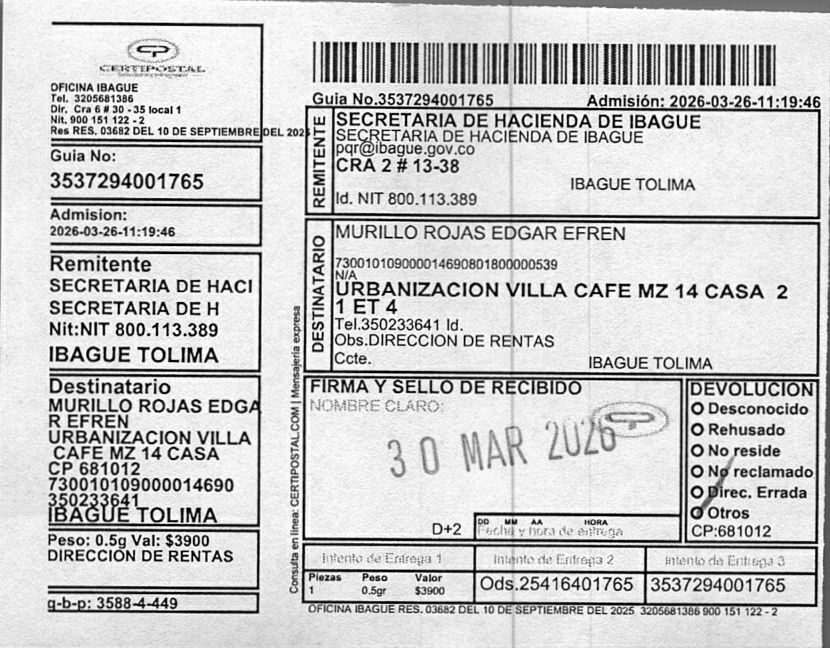 CERTIPOSTAL
OFICINA IBAGUE
Tel. 3205681386
Dir. Cra 6 # 30 - 35 local 1
Nit. 900 151 122 - 2
Res RES. 03682 DEL 10 DE SEPTIEMBRE DEL 2025
Guia No:
3537294001765
Admision:
2026-03-26-11:19:46
Remitente
SECRETARIA DE HACI
SECRETARIA DE H
Nit:NIT 800.113.389
IBAGUE TOLIMA
Destinatario
MURILLO ROJAS EDGA
R EFREN
URBANIZACION VILLA
CAFE MZ 14 CASA
CP 681012
730010109000014690
350233641
IBAGUE TOLIMA
Peso: 0.5g Val: $3900
DIRECCION DE RENTAS
q-b-p: 3588-4-449
Consulta en linea: CERTIPOSTAL.COM | Mensajeria expresa
Guia No.3537294001765 Admisión: 2026-03-26-11:19:46
REMITENTE
SECRETARIA DE HACIENDA DE IBAGUE
SECRETARIA DE HACIENDA DE IBAGUE
pqr@ibague.gov.co
CRA 2 # 13-38
IBAGUE TOLIMA
Id. NIT 800.113.389
DESTINATARIO
MURILLO ROJAS EDGAR EFREN
730010109000014690801800000539
N/A
URBANIZACION VILLA CAFE MZ 14 CASA 2
1 ET 4
Tel.350233641 Id.
Obs.DIRECCION DE RENTAS
Ccte. IBAGUE TOLIMA
FIRMA Y SELLO DE RECIBIDO
NOMBRE CLARO:
30 MAR 2026
D+2
DD MM AA HORA
Fecha y hora de entrega
DEVOLUCION
Desconocido
Rehusado
No reside
No reclamado
Direc. Errada
Otros
CP:681012
Intento de Entrega 1 Intento de Entrega 2 Intento de Entrega 3
Piezas Peso Valor
1 0.5gr $3900
Ods.25416401765 3537294001765
OFICINA IBAGUE RES. 03682 DEL 10 DE SEPTIEMBRE DEL 2025 3205681386 900 151 122 - 2